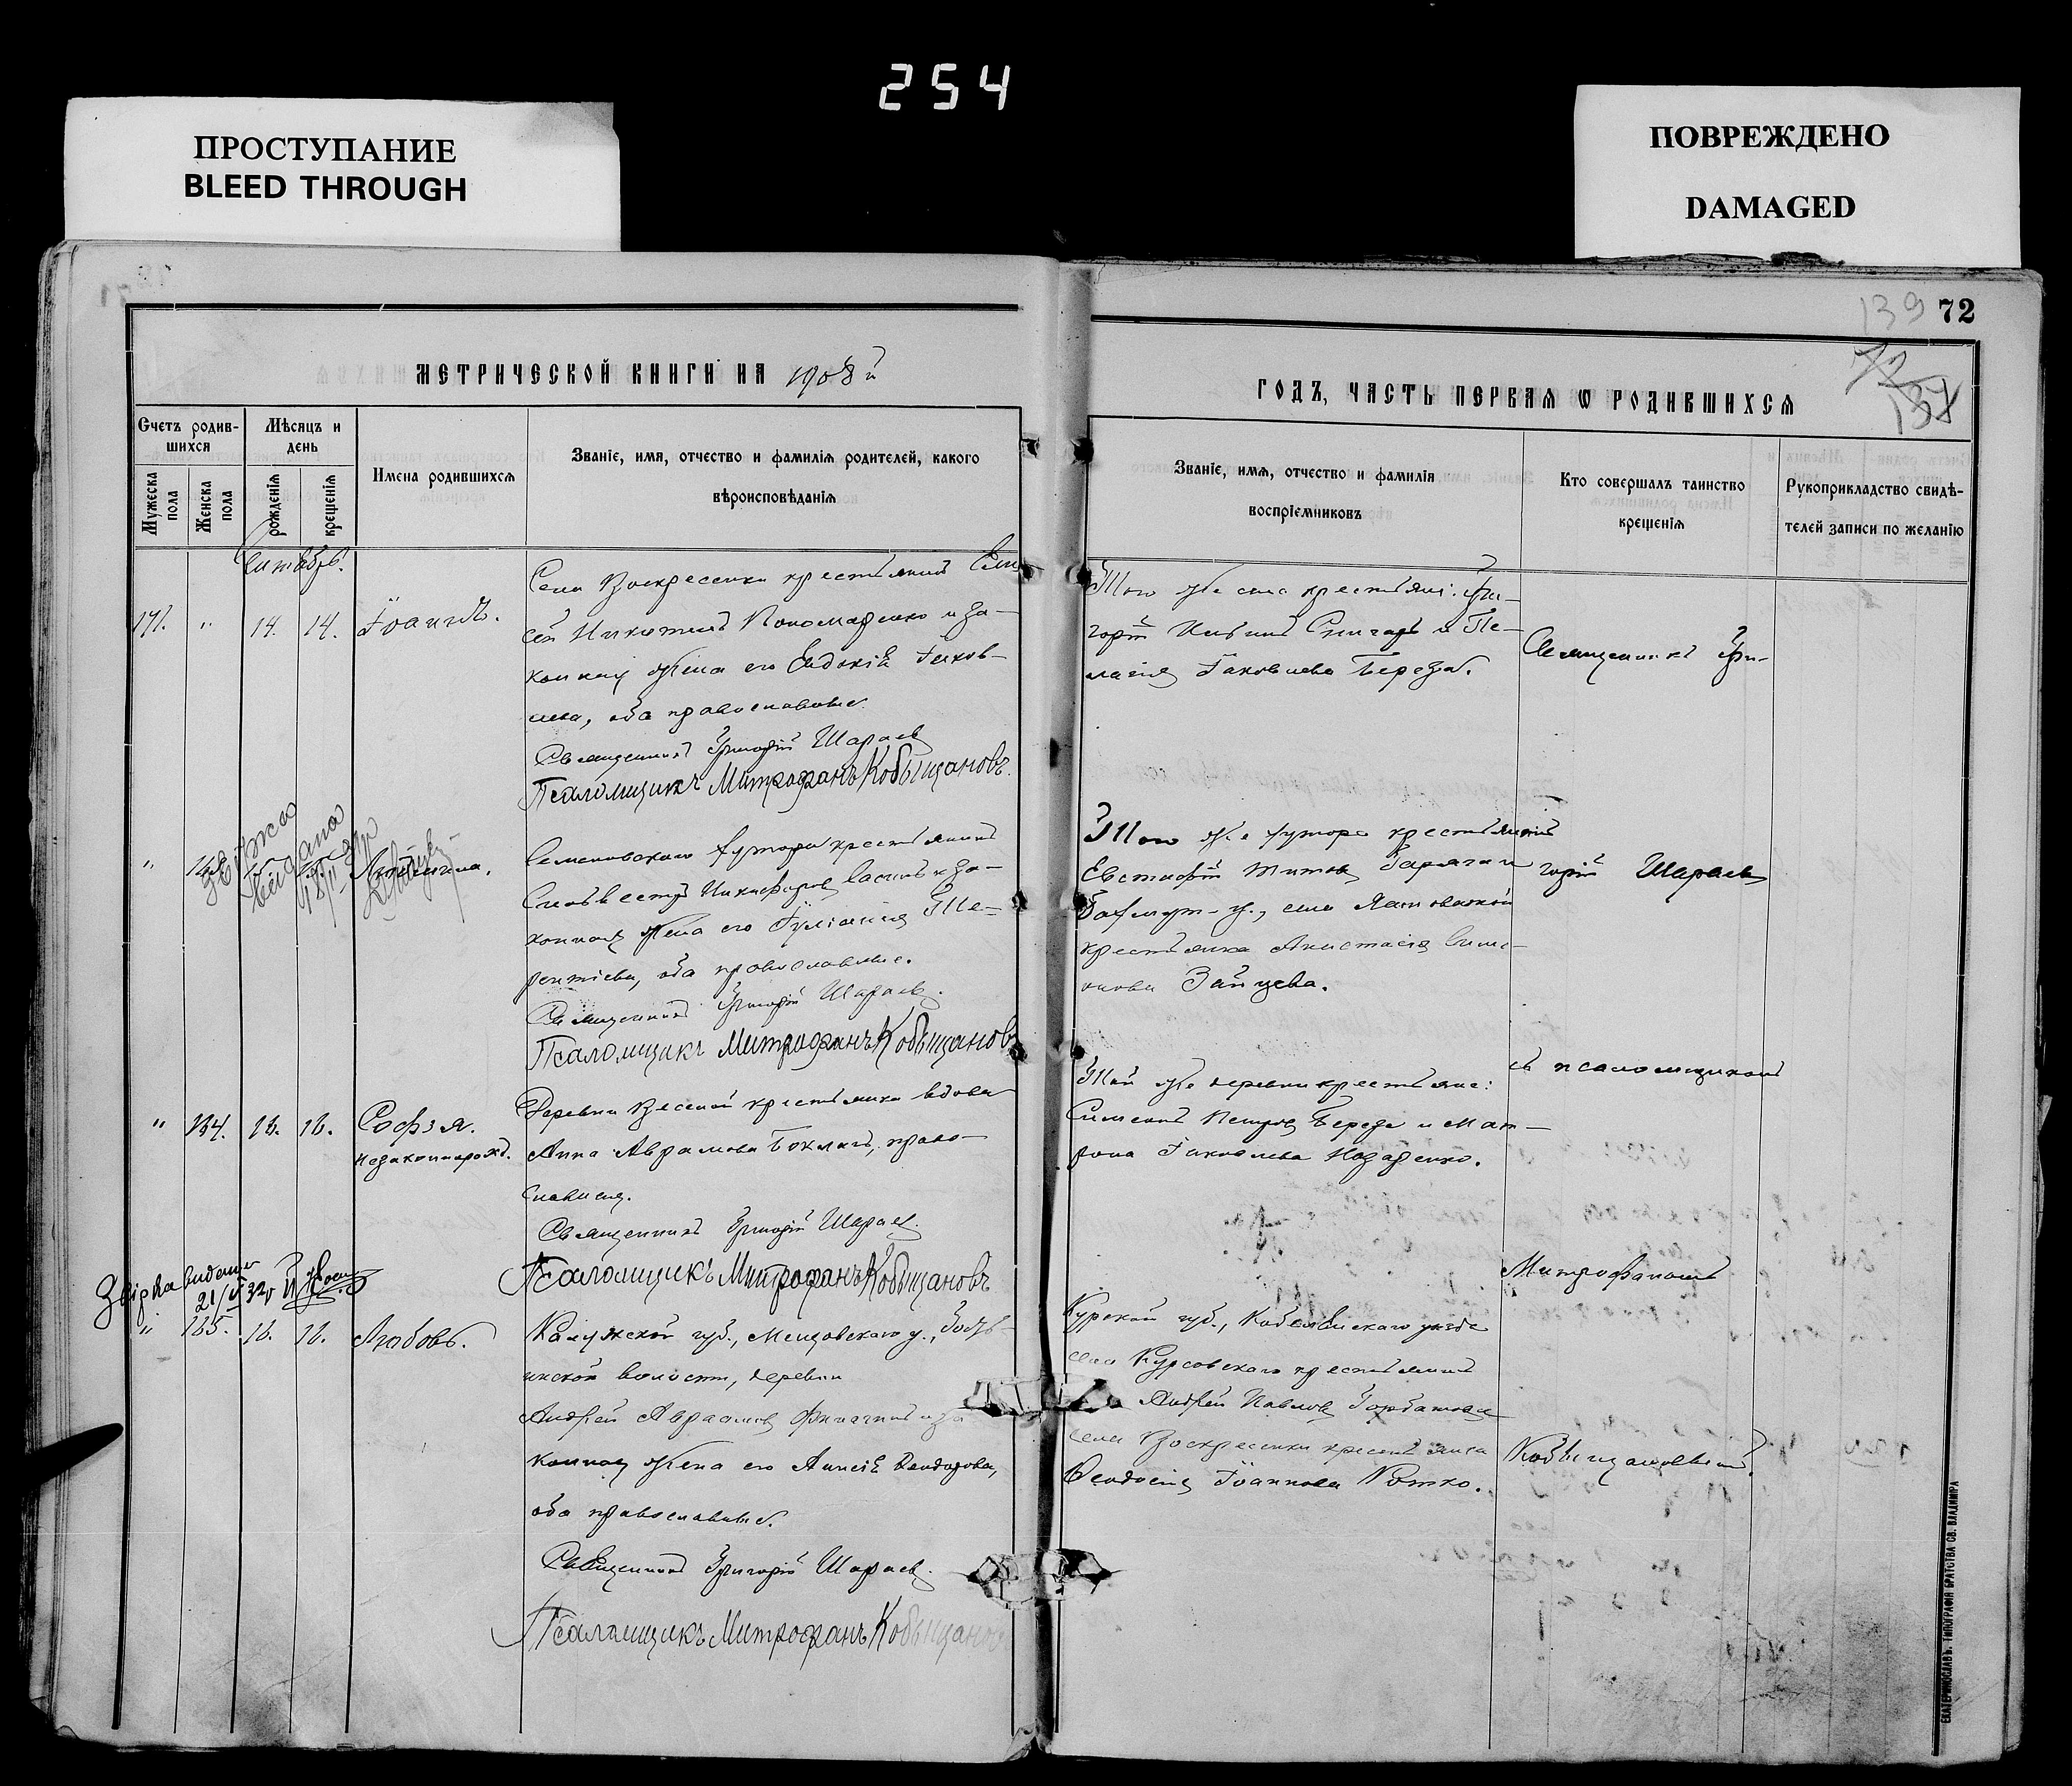 254
ПРОСТУПАНИЕ
BLEED THROUGH
ПОВРЕЖДЕНО
DAMAGED
139 72
МЕТРИЧЕСКОЙ КНИГИ НА 1908 й
ГОДЪ, ЧАСТЬ ПЕРВАЯ Ѡ РОДИВШИХСЯ
Счетъ родив-
шихся
Мужеска пола
Женска пола
Мѣсяцъ и
день
рожденія
крещенія
Имена родившихся
Званіе, имя, отчество и фамилія родителей, какого
вѣроисповѣданія
Званіе, имя, отчество и фамилія
воспріемниковъ
Кто совершалъ таинство
крещенія
Рукоприкладство свидѣ-
телей записи по желанію
Сентябрь.
171. " 14. 14. Іоаннъ.
Села Воскресенки крестьянинъ Ели-
сей Никитинъ Пономаренко и за-
конная жена его Евдокія Іаков-
лева, оба православные.
Священникъ Григорій Шараевъ
Псаломщикъ Митрофанъ Кобыщановъ.
Того же села крестьяне: Гри-
горій Пе-
лагія Іаковлева Береза.
Священникъ Гри-
"
Семеновскаго хутора крестьянинъ
Сильвестръ Никифоровъ и за-
конная жена его Іуліанія Те-
рентіева, оба православные.
Священникъ Григорій Шараевъ.
Псаломщикъ Митрофанъ Кобыщановъ
Того же хутора крестьянинъ
Евстафій Титовъ и
Бахмут. у., села
крестьянка Анастасія Симе-
онова Зайцева.
горій Шараевъ
" 164. 16. 16. Софія.
незаконнорожд.
Деревни Веселой крестьянка вдова
Анна Аврамова право-
славная.
Священникъ Григорій Шараевъ.
Псаломщикъ Митрофанъ Кобыщановъ
Той же деревни крестьяне:
Симеонъ Петровъ Береза и Мат-
рона Іаковлева Назаренко.
съ псаломщикомъ
Митрофаномъ
" 165. 16. 16. Любовь.
Калужской губ., Мещовскаго у.,
инской волости, деревни
Андрей Авраамовъ и за-
конная жена его Анисія Ѳеодорова,
оба православные.
Священникъ Григорій Шараевъ.
Псаломщикъ Митрофанъ Кобыщановъ
Курской губ., уѣзда
села Курсовскаго крестьянинъ
Андрей Павловъ Горбатовъ и
села Воскресенки крестьянка
Ѳеодосія Іоаннова Котко.
Кобыщановымъ.
ЕКАТЕРИНОСЛАВЪ. ТИПОГРАФІЯ БРАТСТВА СВ. ВЛАДИМІРА